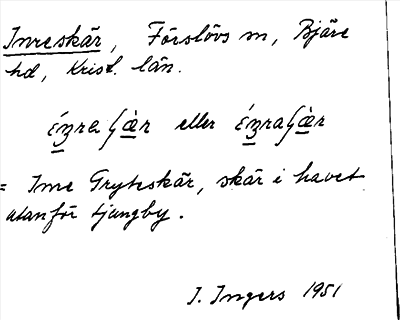 Inreskär, Förslövs sn, Bjäre
hd, Krist. län.
eller
= Inre Gryteskär, skär i havet
utanför Ljungby.
I. Ingers 1951